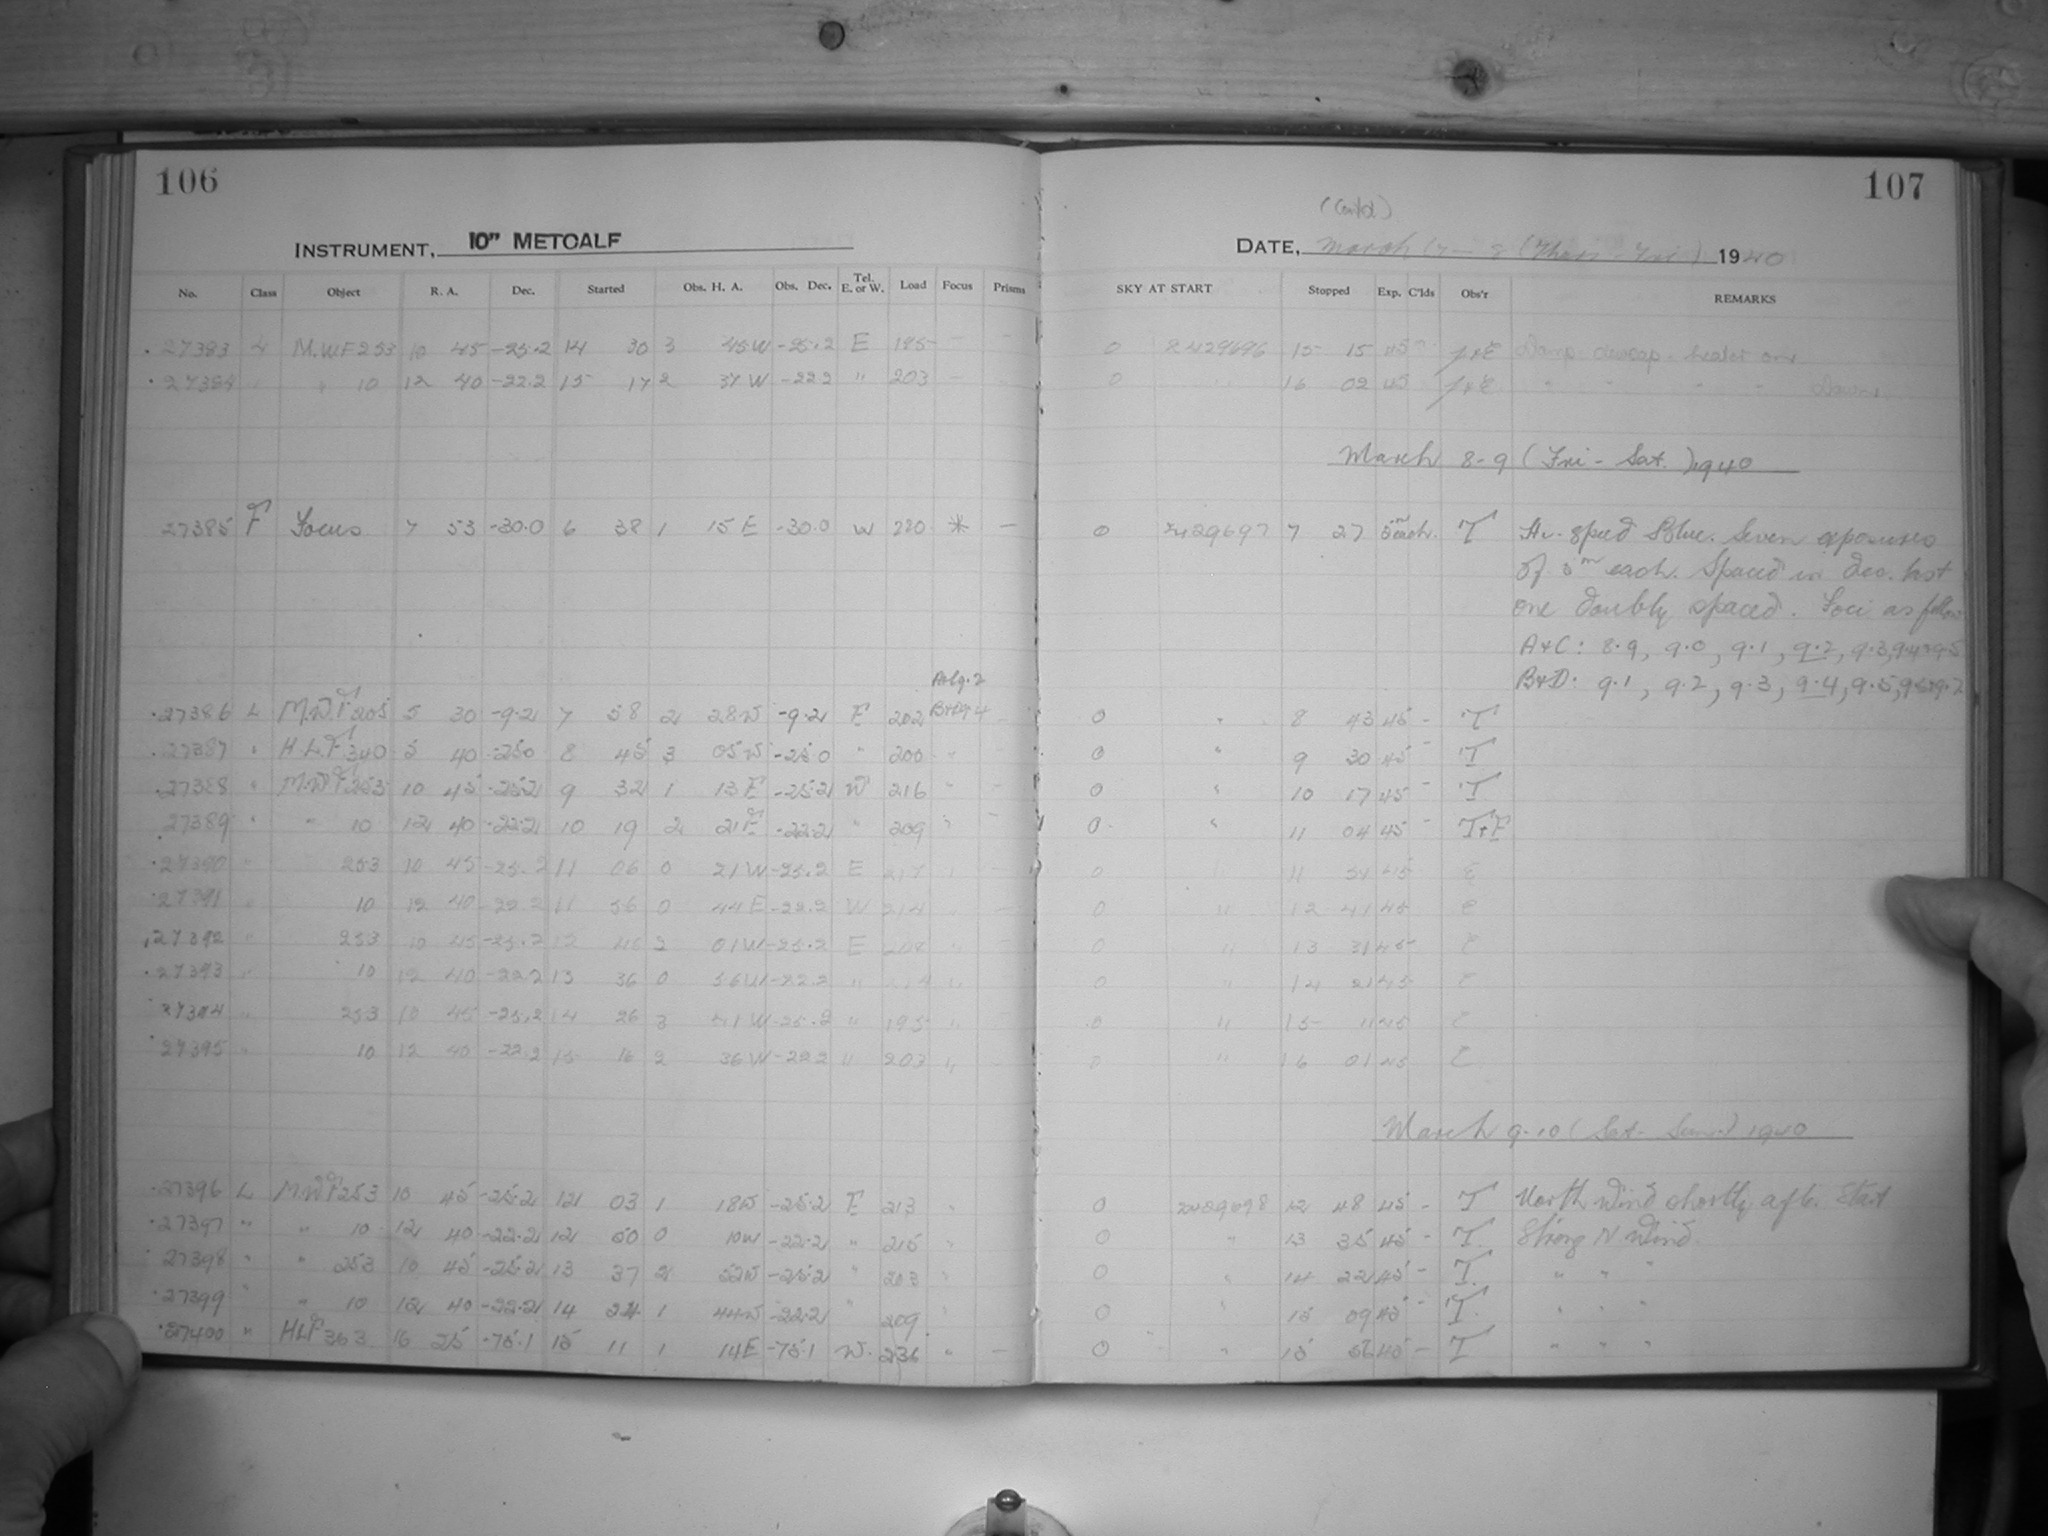 106
INSTRUMENT, 10" METCALF
No. Class Object R. A. Dec. Started Obs. H. A. Obs. Dec. Tel. E. or W. Load Focus Prisms
27383 L M.W.F 253 10 45 -25.2 14 30 3 45 W -25.2 E 195 - -
27384 " " 10 12 40 -22.2 15 17 2 37 W -22.2 " 203 -
27385 F Focus 7 53 -30.0 6 38 1 15 E -30.0 W 220 * -
A+C 9.2
27386 L M.W.F 205 5 30 -9.2 7 58 2 28 W -9.2 E 202 B+D 9.4 -
27387 " H.L.F 340 5 40 -25.0 8 45 3 05 W -25.0 " 200 " -
27388 " M.W.F 253 10 45 -25.2 9 32 1 13 E -25.2 W 216 " -
27389 " " 10 12 40 -22.2 10 19 2 21 E -22.2 " 209 " -
27390 " 253 10 45 -25.2 11 06 0 21 W -25.2 E 217 " -
27391 " 10 12 40 -22.2 11 56 0 44 E -22.2 W 214 " -
27392 " 253 10 45 -25.2 12 46 2 01 W -25.2 E " -
27393 " 10 12 40 -22.2 13 36 0 56 W -22.2 " 214 " -
27394 " 253 10 45 -25.2 14 26 3 41 W -25.2 " 195 " -
27395 " 10 12 40 -22.2 15 16 2 36 W -22.2 " 203 " -
27396 L M.W.F 253 10 45 -25.2 12 03 1 18 W -25.2 E 213 "
27397 " " 10 12 40 -22.2 12 50 0 10 W -22.2 " 215 "
27398 " " 253 10 45 -25.2 13 37 2 52 W -25.2 " 203 "
27399 " " 10 12 40 -22.2 14 24 1 44 W -22.2 " 209 "
27400 " HLF 363 16 25 -75.1 15 11 1 14 E -75.1 W. 236 " -
107
(Cont'd.)
DATE, March 7 - 8 (Thurs - Fri) 1940
SKY AT START Stopped Exp. C'lds Obs'r REMARKS
0 2429696 15 15 45m Damp dewcap - heater on
0 " 16 02 45 " " " " Dawn
March 8-9 (Fri - Sat.) 1940
0 2429697 7 27 5m each. T Hi-speed Blue. Seven exposures
of 5m each. Spaced in Dec. last
one doubly spaced. Foci as follow
A+C: 8.9, 9.0, 9.1, 9.2, 9.3, 9.4, 9.5
B+D: 9.1, 9.2, 9.3, 9.4, 9.5, 9.6, 9.7
0 " 8 43 45 - T
0 " 9 30 45 - T
0 " 10 17 45 - T
0 " 11 04 45 - T+E
0 " 11 51 45 E
0 " 12 41 45 E
0 " 13 31 45 E
0 " 14 21 45 E
0 " 15 11 45 E
0 " 16 01 45 E
March 9-10 (Sat - Sun.) 1940
0 2429698 12 48 45 - T North wind shortly after start
0 " 13 35 45 - T. Strong N wind.
0 " 14 22 45 - T. " " "
0 " 15 09 45 - T. " " "
0 " 15 56 45 - T " " "